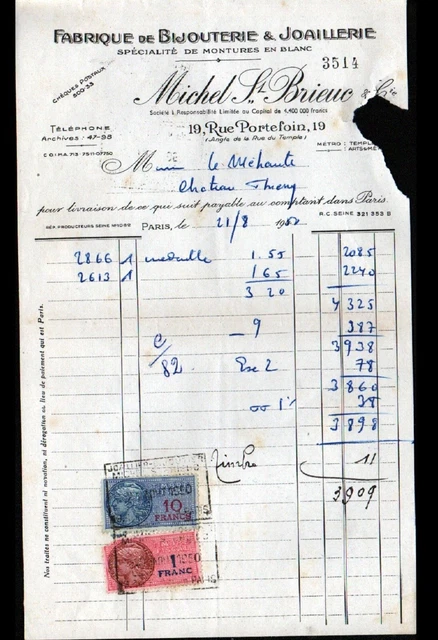 3514
FABRIQUE DE BIJOUTERIE & JOAILLERIE
SPÉCIALITÉ DE MONTURES EN BLANC
CHÈQUES POSTAUX
Michel St Brieuc & Cie
Société à Responsabilité Limitée au Capital de 4.400 000 francs
TÉLÉPHONE
Archives : 47-95
19, Rue Portefoin, 19
(Angle de la Rue du Temple)
MÉTRO : TEMPLE
M
Château Thierry
pour livraison de ce qui suit payable au comptant dans Paris.
R.C. SEINE 321 353 B
PARIS, le 21/8 19
2866 1 medaille 1.55 2085
2613 1 165 2240
3 20 4 325
- 9 387
3 938
/82 Esc 2 78
3 860
1% 38
3 898
Timbre 11
3909
Nos traites ne constituent ni novation, ni dérogation au lieu de paiement qui est Paris.
10
FRANCS
1950
1
FRANC
1950
PARIS